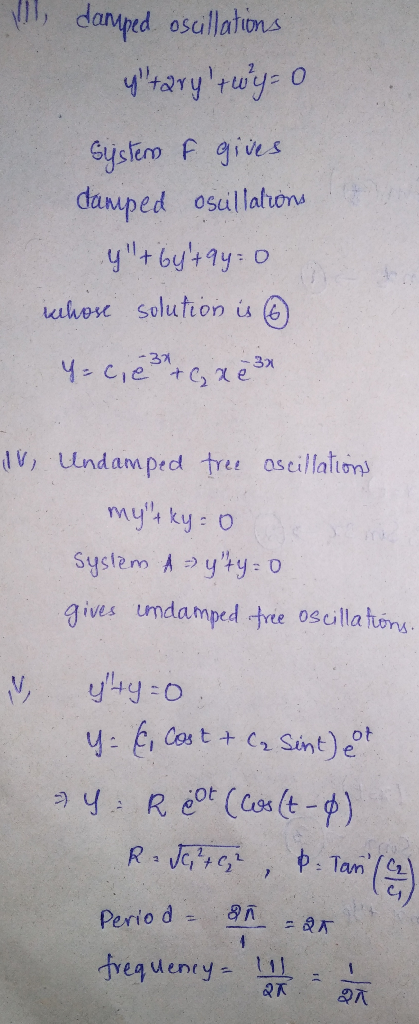 III, damped oscillations
y''+2ry'+w²y=0
System F gives
damped oscillations
y''+6y'+9y=0
whose solution is ⑥
y=c₁e⁻³ˣ+c₂xe⁻³ˣ
IV, Undamped free oscillations
my''+ky=0
System A ⇒ y''+y=0
gives undamped free oscillations.
V, y''+y=0
y=(C₁ Cos t + C₂ Sint) e⁰ᵗ
⇒ y = R e⁰ᵗ (Cos(t-ϕ)
R = √C₁²+C₂² , ϕ = Tan⁻¹(C₂/C₁)
Period = 2π/1 = 2π
frequency = |1|/2π = 1/2π